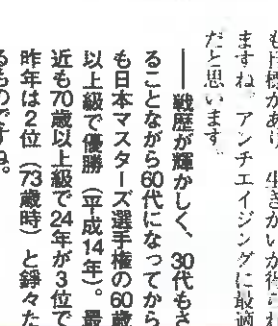 も目標があり、生きがいが得られ
ますね。アンチエイジングに最適
だと思います。
――戦歴が輝かしく、30代もさ
ることながら60代になってから
も日本マスターズ選手権の60歳
以上級で優勝（平成14年）。最
近も70歳以上級で24年が3位で
昨年は2位（73歳時）と錚々た
るものですね。